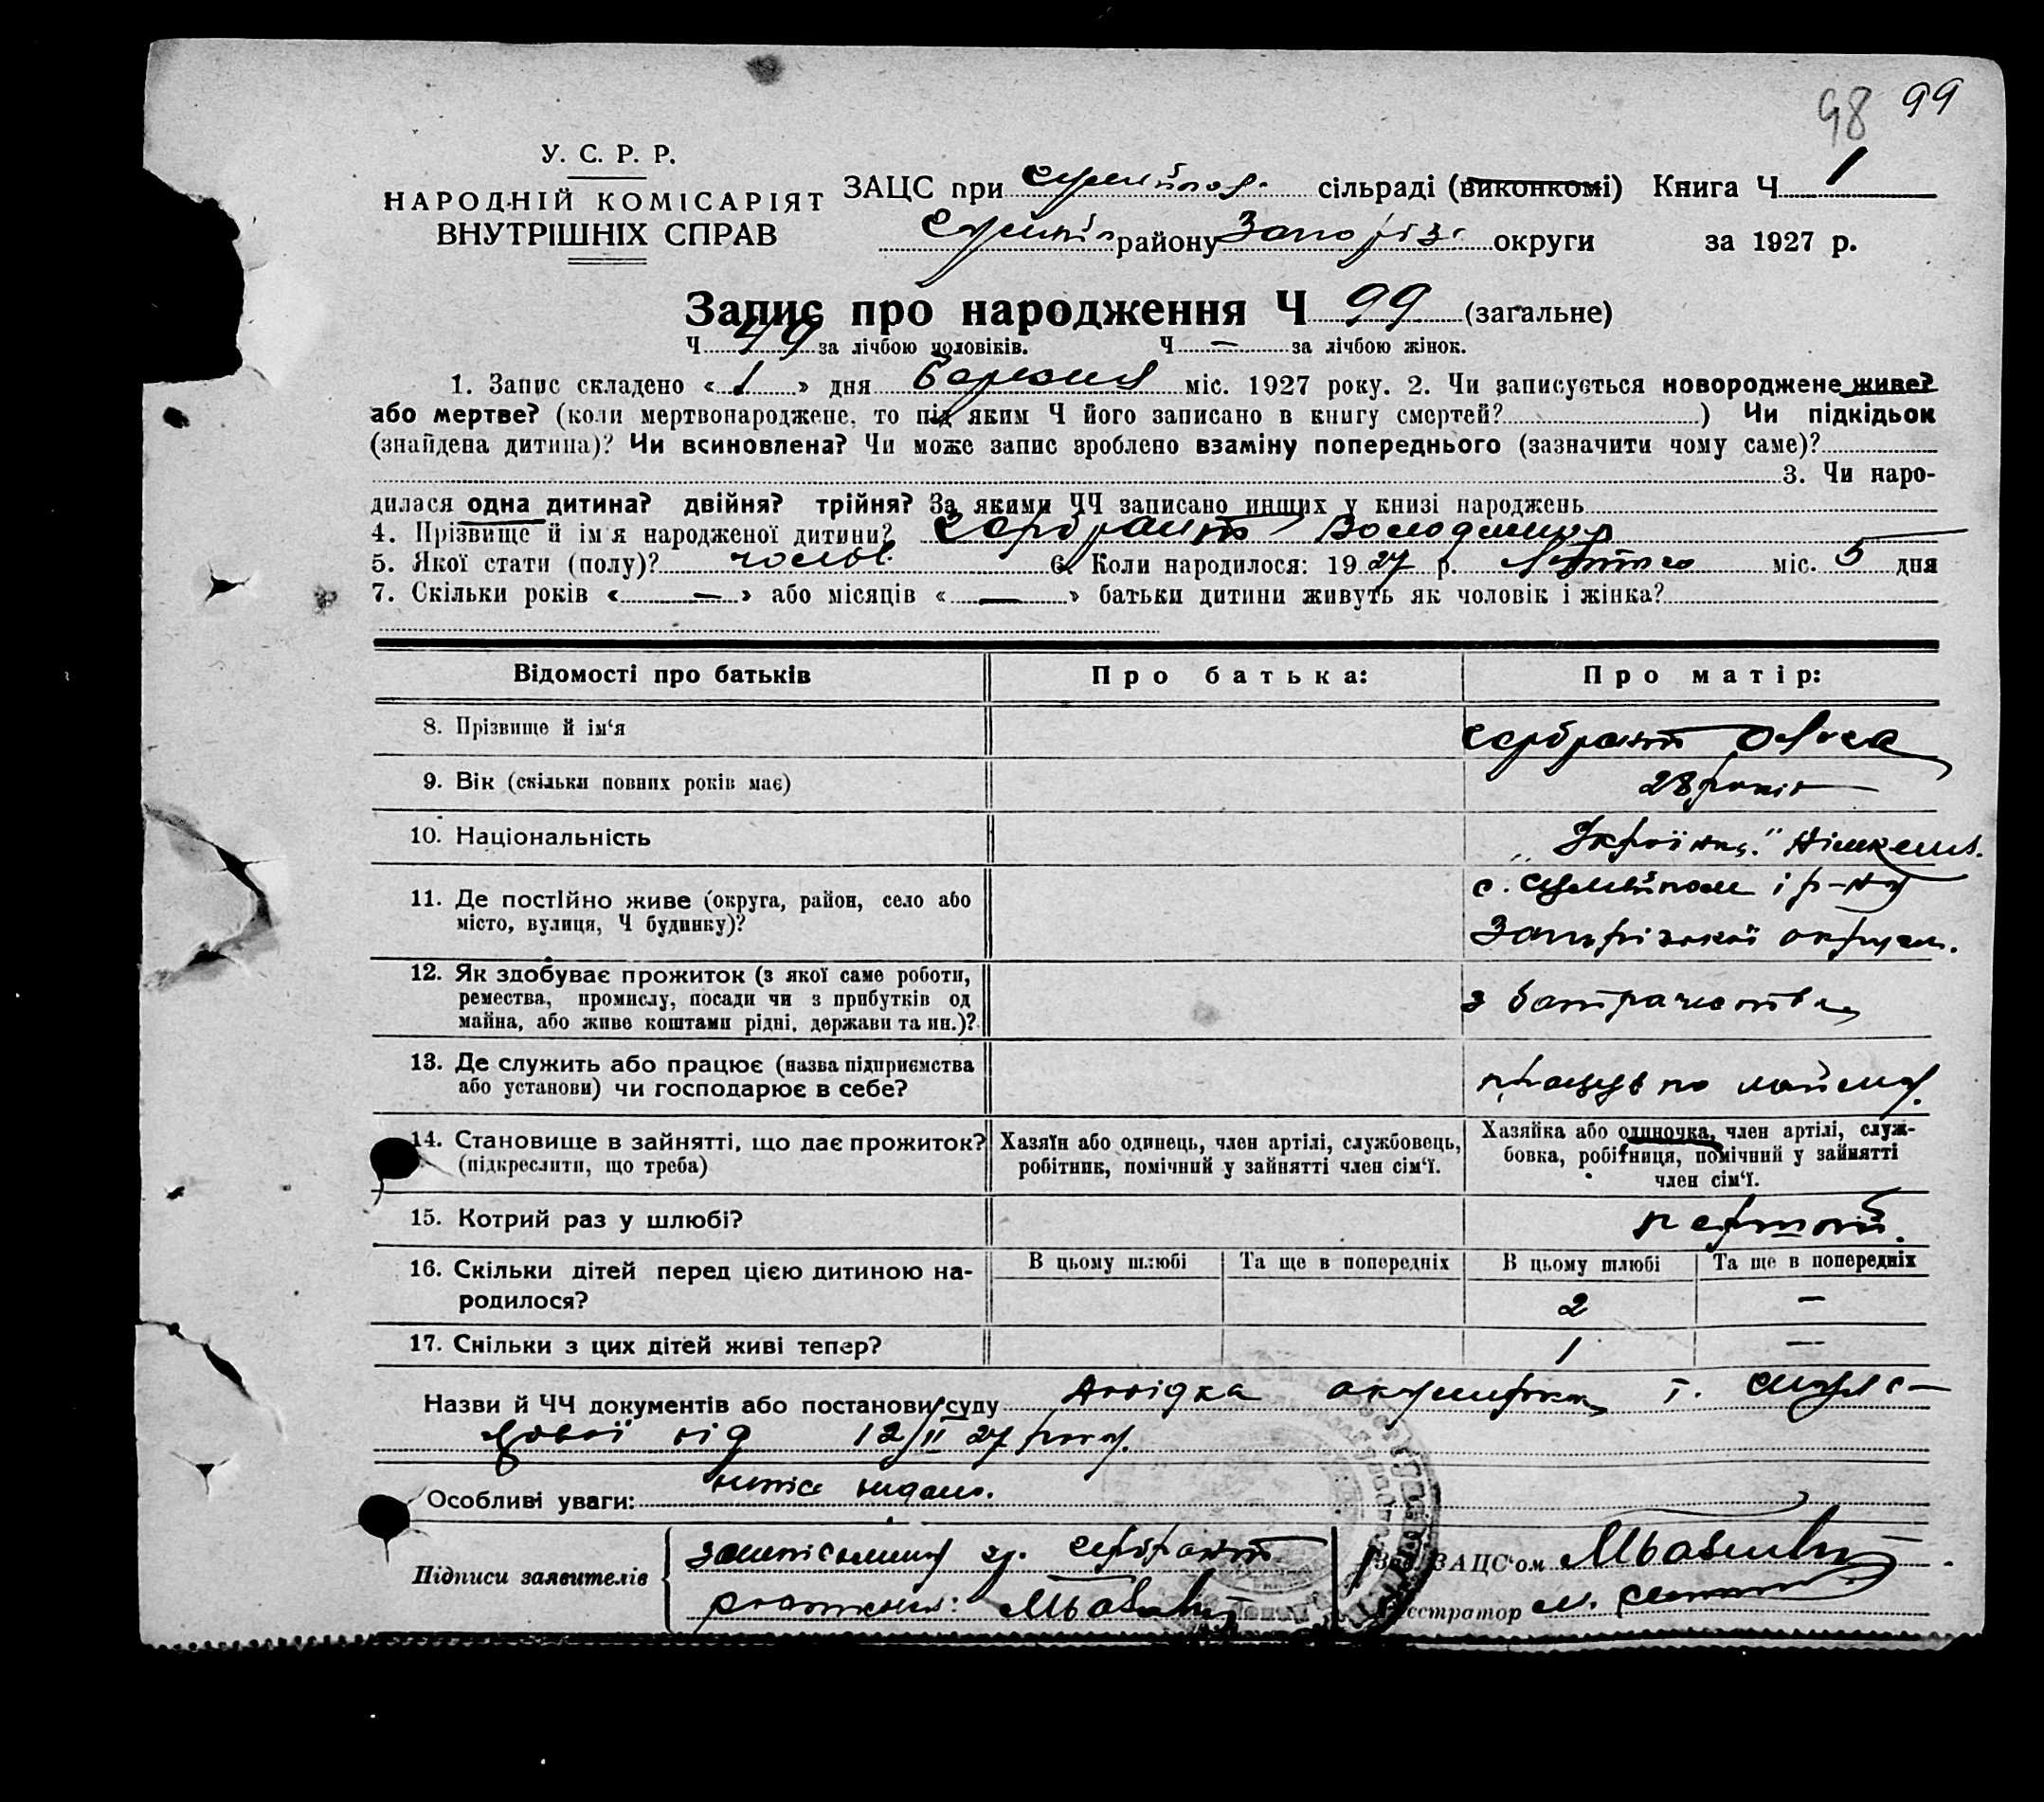 98 99
У. С. Р. Р.
НАРОДНІЙ КОМІСАРІЯТ
ВНУТРІШНІХ СПРАВ
ЗАЦС при сільраді (виконкомі) Книга Ч 1
району Запоріз. округи за 1927 р.
Запис про народження Ч 99 (загальне)
Ч 49 за лічбою чоловіків. Ч — за лічбою жінок.
1. Запис складено «1» дня березня міс. 1927 року. 2. Чи записується новороджене живе?
або мертве? (коли мертвонароджене, то під яким Ч його записано в книгу смертей? ) Чи підкідьок
(знайдена дитина)? Чи всиновлена? Чи може запис зроблено взаміну попереднього (зазначити чому саме)?
3. Чи наро-
дилася одна дитина? двійня? трійня? За якими ЧЧ записано инших у книзі народжень
4. Прізвище й ім'я народженої дитини? Сербрант Володимир
5. Якої стати (полу)? чолов. 6. Коли народилося: 1927 р. Лютого міс. 5 дня
7. Скільки років «—» або місяців «—» батьки дитини живуть як чоловік і жінка?
Відомості про батьків Про батька: Про матір:
8. Прізвище й ім'я Сербрант
9. Вік (скільки повних років має) 28 років
10. Національність "Українц."
11. Де постійно живе (округа, район, село або
місто, вулиця, Ч будинку)? с. і р-ну
Запорізької округи.
12. Як здобуває прожиток (з якої саме роботи,
ремества, промислу, посади чи з прибутків од
майна, або живе коштами рідні, держави та ин.)? з батрачества
13. Де служить або працює (назва підприємства
або установи) чи господарює в себе? працює по найму.
14. Становище в зайнятті, що дає прожиток?
(підкреслити, що треба)
Хазяїн або одинець, член артілі, службовець,
робітник, помічний у зайнятті член сім'ї.
Хазяйка або одиночка, член артілі, служ-
бовка, робітниця, помічний у зайнятті
член сім'ї.
15. Котрий раз у шлюбі? первий.
16. Скільки дітей перед цією дитиною на-
родилося?
В цьому шлюбі Та ще в попередніх В цьому шлюбі Та ще в попередніх
2 —
17. Скільки з цих дітей живі тепер? 1 —
Назви й ЧЧ документів або постанови суду Довідка акушерки
від 12/II 27 року.
Особливі уваги: видано.
Підписи заявителів гр. Сербрант
Зав. ЗАЦС'ом
Реєстратор